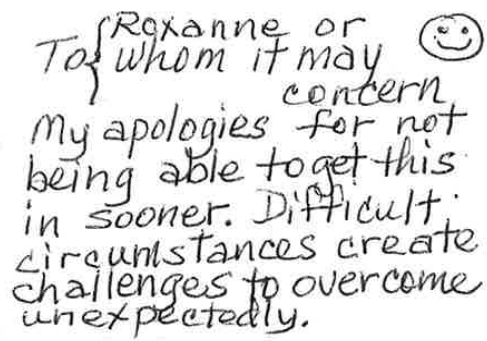 To { Roxanne or
whom it may
concern
My apologies for not
being able to get this
in sooner. Difficult
circumstances create
challenges to overcome
unexpectedly.